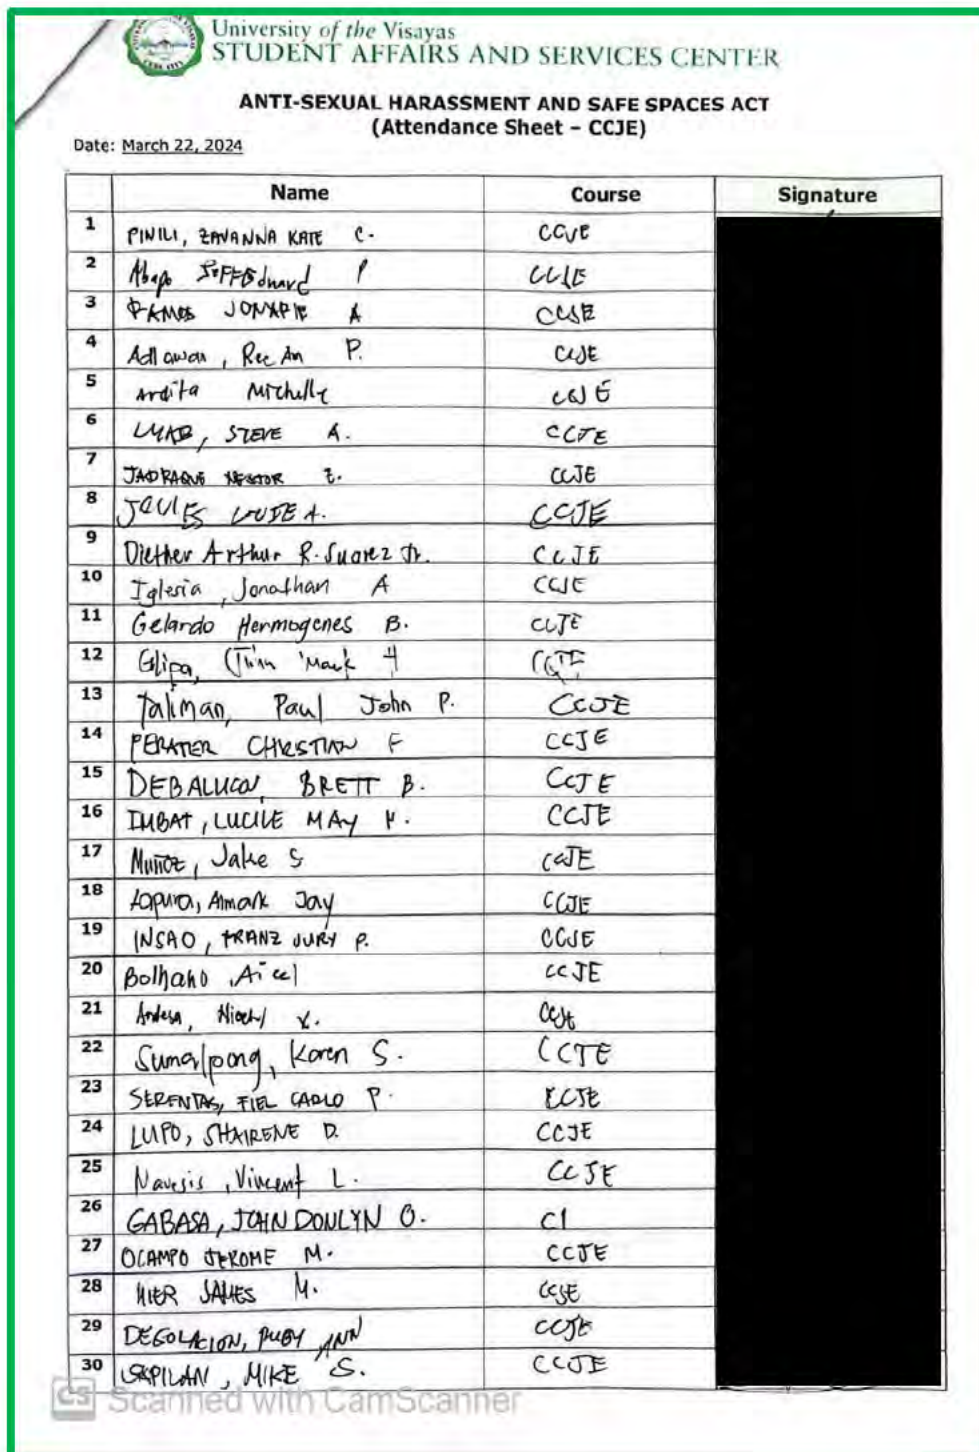 University of the Visayas
STUDENT AFFAIRS AND SERVICES CENTER
ANTI-SEXUAL HARASSMENT AND SAFE SPACES ACT
(Attendance Sheet – CCJE)
Date: March 22, 2024
Name Course Signature
1 PINILI, ZAVANNA KATE C. CCJE
2 P CCJE
3 RAMOS A CCJE
4 Adlawan, P. CCJE
5 Ardita Michelle CCJE
6 STEVE A. CCJE
7 JADRAQUE NESTOR Z. CCJE
8 A. CCJE
9 Diether Arthur R. Suarez Jr. CCJE
10 Iglesia, Jonathan A CCJE
11 Gelardo Hermogenes B. CCJE
12 Mark CCJE
13 Taliman, Paul John P. CCJE
14 PERATER CHRISTIAN F CCJE
15 BRETT B. CCJE
16 IMBAT, LUCILE MAY CCJE
17 Muñoz, Jake S CCJE
18 Almark Jay CCJE
19 INSAO, FRANZ JURY P. CCJE
20 Bolhano CCJE
21 CCJE
22 Sumalpong, Karen S. CCJE
23 SERENTAS, FIEL CARLO P. CCJE
24 LUPO, SHAIRENE D. CCJE
25 Vincent L. CCJE
26 GABASA, JOHN DONLYN O. C1
27 OCAMPO JEROME M. CCJE
28 HIER JAMES M. CCJE
29 DEGOLACION, RUBY ANN CCJE
30 MIKE S. CCJE
CS Scanned with CamScanner